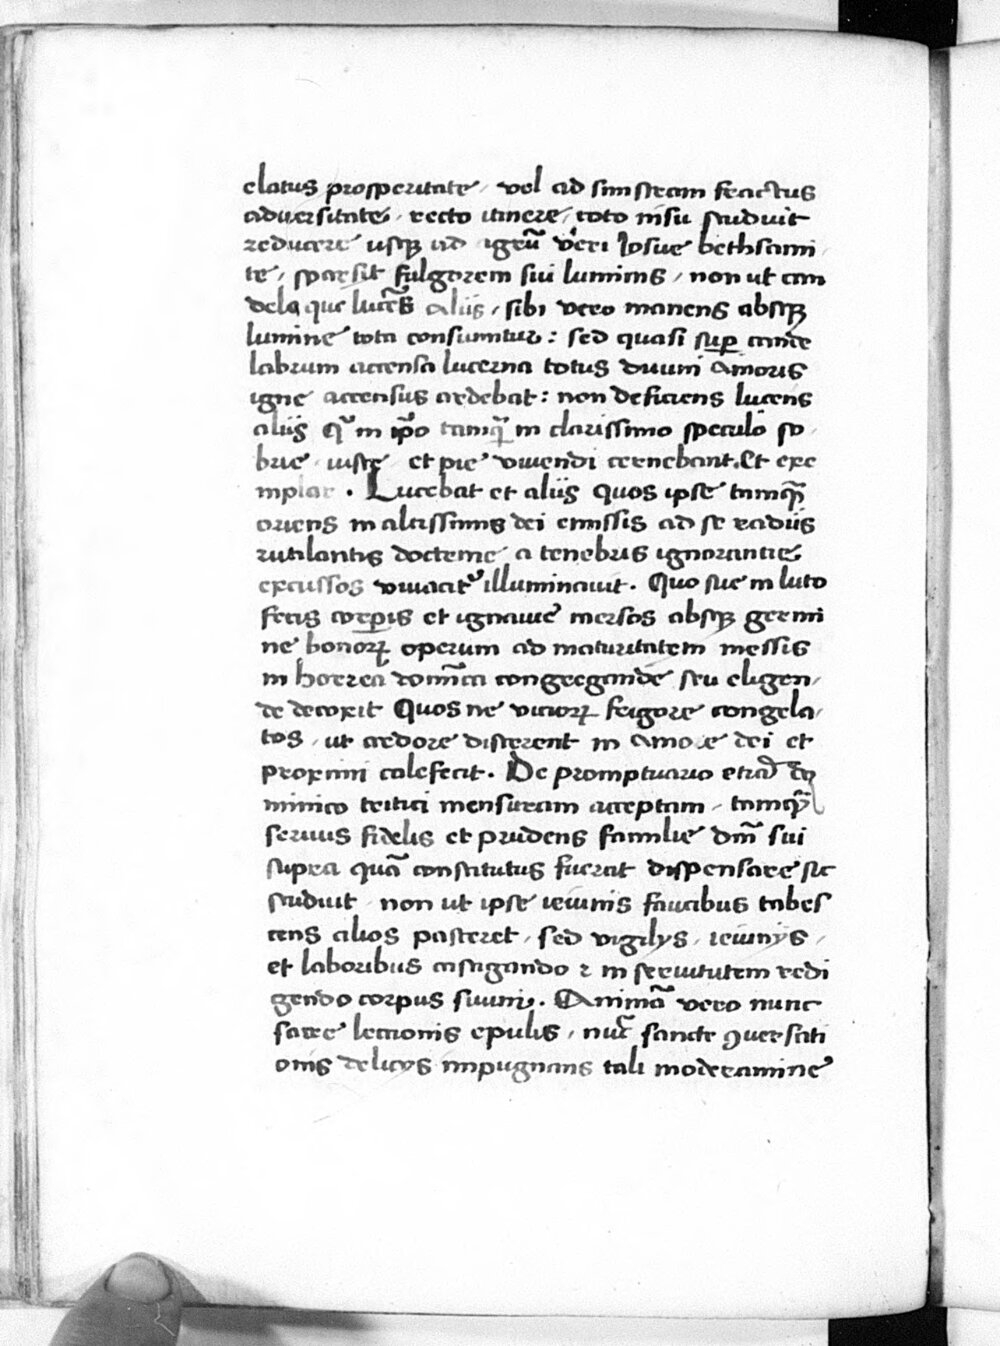 elatus prosperitate, vel ad sinistram fractus
adversitate, recto itinere, toto nisu studuit
reducere usq; ad agrũ veri Iosue bethsami
te, sparsit fulgorem sui luminis, non ut can
dela que lucẽs aliis, sibi vero manens absq;
lumine tota consumitur: sed quasi sup cande
labrum accensa lucerna totus divini amoris
igne accensus ardebat: non deficiens lucens
aliis Qui in ip̃o tamq̃ in clarissimo speculo so
brie, iuste, et pie vivendi cernebant. Et exe
mplar. Lucebat et aliis quos ipse tamq̃
oriens in altissimis dei emissis ad se radiis
rutilantis doctrine a tenebris ignorantie
excussos vivacit illuminavit. Quo sue in luto
fecis corpis et ignavie mersos absq; germi
ne bonoꝝ operum ad maturitatem messis
in horrea domĩca congregande seu eligen,
de decoxit Quos ne vicioꝝ frigore congela,
tos, ut ardore discerent in amore dei et
proximi calefecit. De promptuario etiã do
minico tritici mensuram acceptam, tamq̃
servus fidelis et prudens familie dñi sui
supra quã constitutus fuerat dispensare sic
studuit, non ut ipse ieiunis faucibus tabes
cens alios pasceret, sed vigilys, ieiunys,
et laboribus castigando ⁊ in servitutem redi
gendo corpus suum. Animã vero nunc
sacre lectionis epulis, nũc sancte ꝯversati
onis delicys impugnans tali moderamine